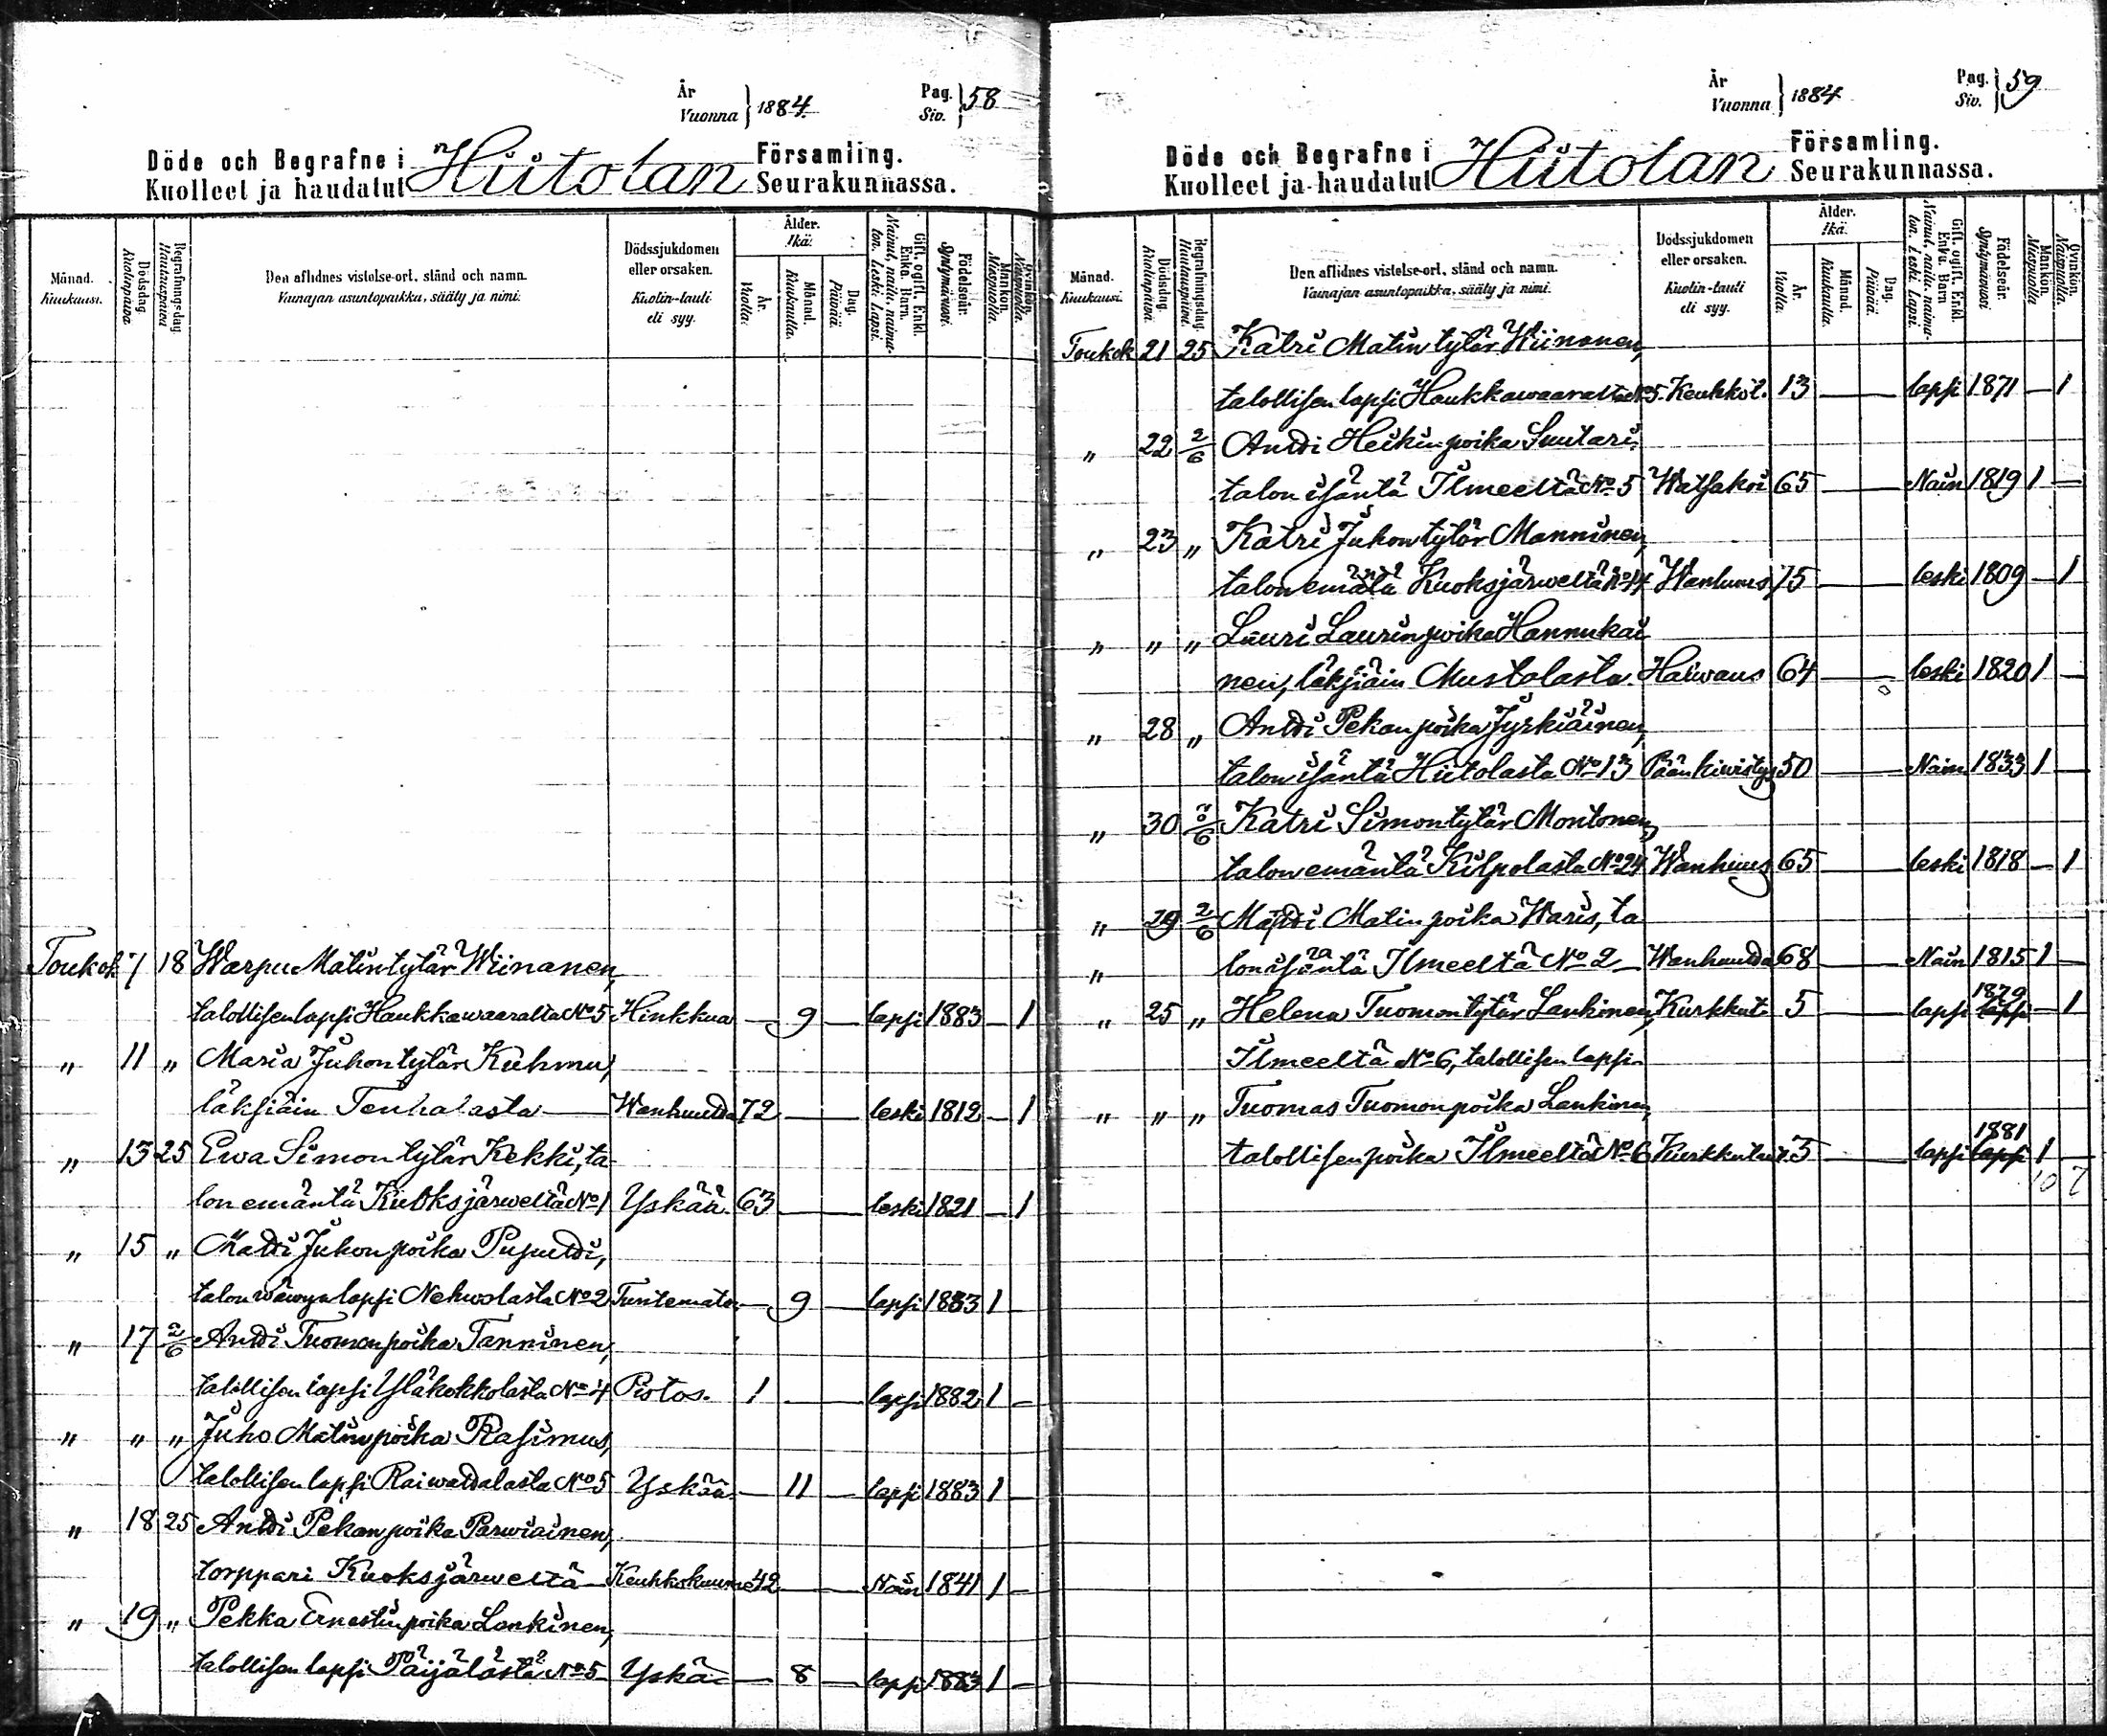 År
Vuonna } 1884.
Pag.
Siv. } 58
Döde och Begrafne i Hiitolan Församling.
Kuolleet ja haudatut Seurakunnassa.
Månad. Kuukausi.
Dödsdag. Kuolinpäivä
Begrafnings-dag. Hautauspäivä
Den aflidnes vistelse-ort, stånd och namn.
Vainajan asuntopaikka, sääty ja nimi.
Dödssjukdomen eller orsaken.
Kuolin-tauti eli syy.
Ålder. Ikä.
År. Vuotta.
Månad. Kuukautta.
Dag. Päivää.
Gift, ogift. Enkl. Enka. Barn.
Nainut, naitu, naimaton. Leski. Lapsi.
Födelseår. Syntymävuosi.
Mankön. Miespuolia.
Qvinkön. Naispuolia.
Toukok. 7 18 Warpu Matintytär Wiinanen,
talollisen lapsi Haukkawaaralta No 5 Hinkkua — 9 — lapsi 1883 — 1
" 11 " Maria Juhontytär Kuhmu,
läksiäin Tenhalasta — Wanhuutta 72 — leski 1812 — 1
" 13 25 Ewa Simontytär Kekki, ta
lon emäntä Kuoksjärweltä No 1 Yskää 63 — leski 1821 — 1
" 15 " Matti Juhonpoika Puputti,
talon wäwyn lapsi Nehwolasta No 2 Tuntematon — 9 — lapsi 1883 1
" 17 2/6 Antti Tuomonpoika Tanninen,
talollisen lapsi Yläkokkolasta No 4 Pistos. 1 — lapsi 1882 1 —
" " " Juho Matinpoika Rasimus,
talollisen lapsi Raiwattalasta No 5 Yskää — 11 — lapsi 1883 1 —
" 18 25 Antti Pekanpoika Parwiainen,
torppari Kuoksjärweltä Keuhkokuume 42 — Nain 1841 1 —
" 19 " Pekka Ernestinpoika Lankinen,
talollisen lapsi Päijälästä No 5 Yskä — 8 — lapsi 1883 1 —
År
Vuonna } 1884
Pag.
Siv. } 59
Döde och Begrafne i Hiitolan Församling.
Kuolleet ja haudatut Seurakunnassa.
Månad. Kuukausi.
Dödsdag. Kuolinpäivä.
Begrafningsdag. Hautauspäivä.
Den aflidnes vistelse-ort, stånd och namn.
Vainajan asuntopaikka, sääty ja nimi.
Dödssjukdomen eller orsaken.
Kuolin-tauti eli syy.
Ålder. Ikä.
År. Vuotta.
Månad. Kuukautta.
Dag. Päivää.
Gift, ogift. Enkl. Enka. Barn.
Nainut, naitu, naimaton. Leski. Lapsi.
Födelseår. Syntymävuosi
Mankön. Miespuolia
Qvinkön. Naispuolia.
Toukok 21 25 Katri Matintytär Wiinanen,
talollisen lapsi Haukkawaaralta No 5 Keuhköt. 13 — lapsi 1871 — 1
" 22 2/6 Antti Heikinpoika Suutari
talon isäntä Ilmeeltä No 5 Watsakoi 65 — Nain 1819 1 —
" 23 " Katri Juhontytär Manninen,
talon emäntä Kuoksjärweltä No 14 Wanhuus 75 — leski 1809 — 1
" " " Lauri Laurinpoika Hannukai
nen, läksiäin Mustolasta. Haiwaus 64 — leski 1820 1 —
" 28 " Antti Pekanpoika Jyrkiäinen,
talon isäntä Hiitolasta No 13 Päänkiwistys 50 — Nain 1833 1 —
" 30 /6 Katri Simontytär Montonen,
talon emäntä Kilpolasta No 24 Wanhuus 65 — leski 1818 — 1
" 29 2/6 Matti Matinpoika Waris, ta
" lonisäntä Ilmeeltä No 2 — Wanhuutta 68 — Nain 1815 1 —
" 25 " Helena Tuomontytär Lankinen, Kurkkut 5 — lapsi 1879 lapsi — 1
Ilmeeltä No 6, talollisen lapsi
" " " Tuomas Tuomonpoika Lankinen,
talollisen poika Ilmeeltä No 6 Kurkkutaut. 3 — lapsi 1881 lapsi 1 —
10 7